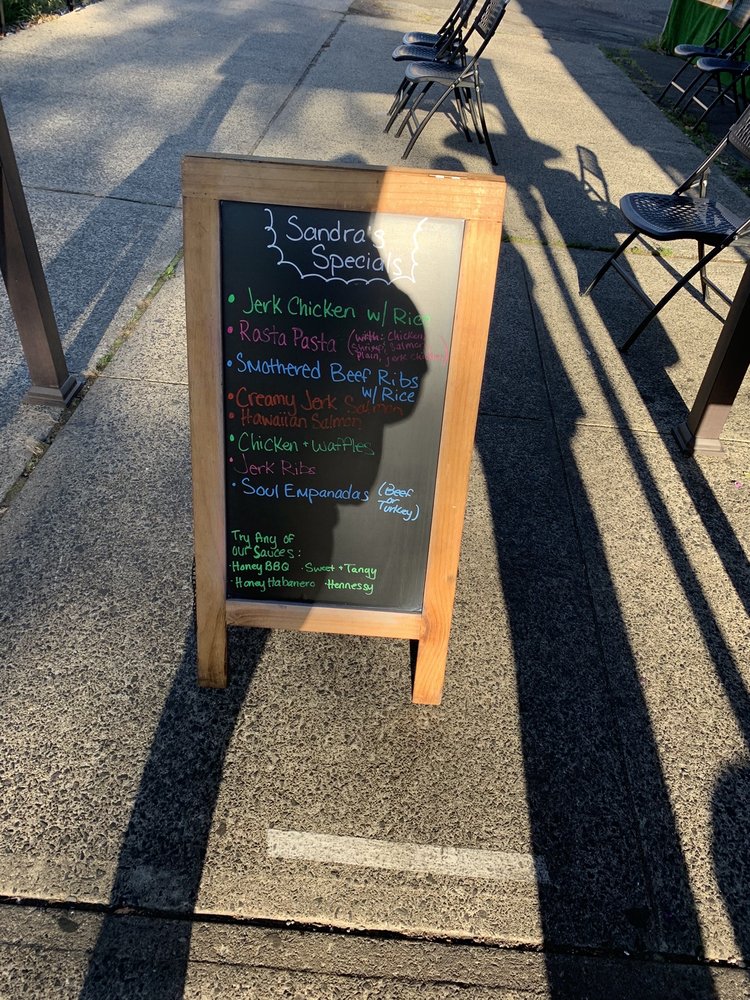 Sandra's
Specials
• Jerk Chicken w/ Rice
• Rasta Pasta (with: Chicken,
shrimp, Salmon,
plain, jerk chicken)
• Smothered Beef Ribs
w/ Rice
• Creamy Jerk Salmon
• Hawaiian Salmon
• Chicken + Waffles
• Jerk Ribs
• Soul Empanadas (Beef
or
Turkey)
Try Any of
our Sauces:
• Honey BBQ • Sweet + Tangy
• Honey Habanero • Hennessy